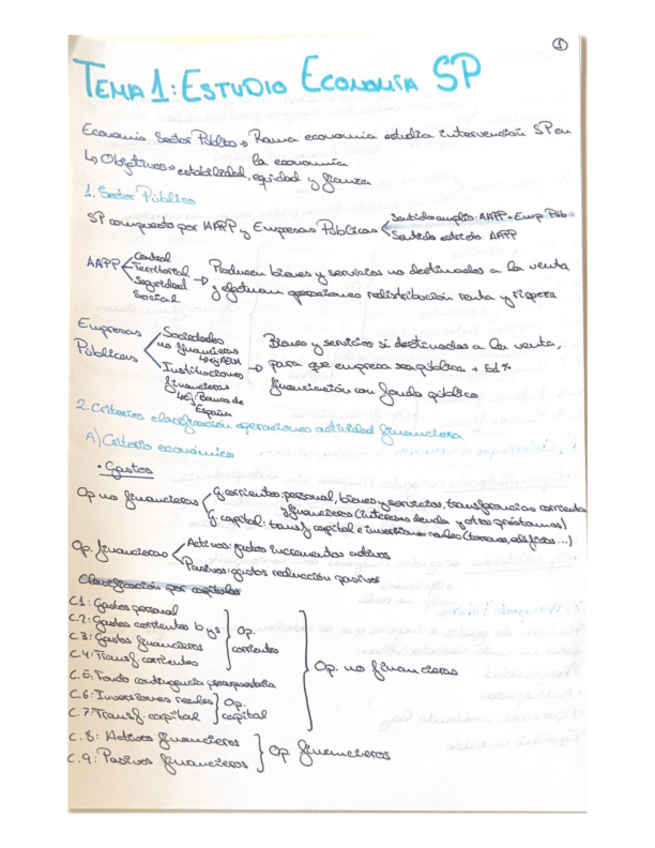 1
TEMA 1: ESTUDIO ECONOMÍA SP
Economía Sector Público → Rama economía estudia intervención SP en
la economía
↳ Objetivos → estabilidad, equidad y
1. Sector Público
SP compuesto por AAPP y Empresas Públicas
Sentido amplio: AAPP + Emp. Púb.
Sentido estricto: AAPP
AAPP
Central
Territorial
Seguridad
Social
→ Producen bienes y servicios no destinados a la venta
y efectúan operaciones redistribución renta y riqueza
Empresas
Públicas
Sociedades
no financieras
↳ej:
Instituciones
financieras
↳ej: Banco de
España
→ Bienes y servicios sí destinados a la venta,
para que empresa sea pública + 51%
financiación con fondo público
2. Criterios clasificación operaciones actividad financiera
A) Criterio económico
• Gastos
Op no financieras
G corrientes: personal, bienes y servicios, transferencias corrientes
y financieros (intereses deuda y otros préstamos)
G. capital: transf capital e inversiones reales (terrenos, edificios...)
Op. financieras
Activos: gastos incrementos activos
Pasivos: gastos reducción pasivos
Clasificación por capítulos
C.1: Gastos personal
C.2: Gastos corrientes b y s
C.3: Gastos financieros
C.4: Transf corrientes
Op.
corrientes
C.5: Fondo contingencia presupuestaria
C.6: Inversiones reales
C.7: Transf capital
Op.
capital
Op. no financieras
C.8: Activos financieros
C.9: Pasivos financieros
Op financieras